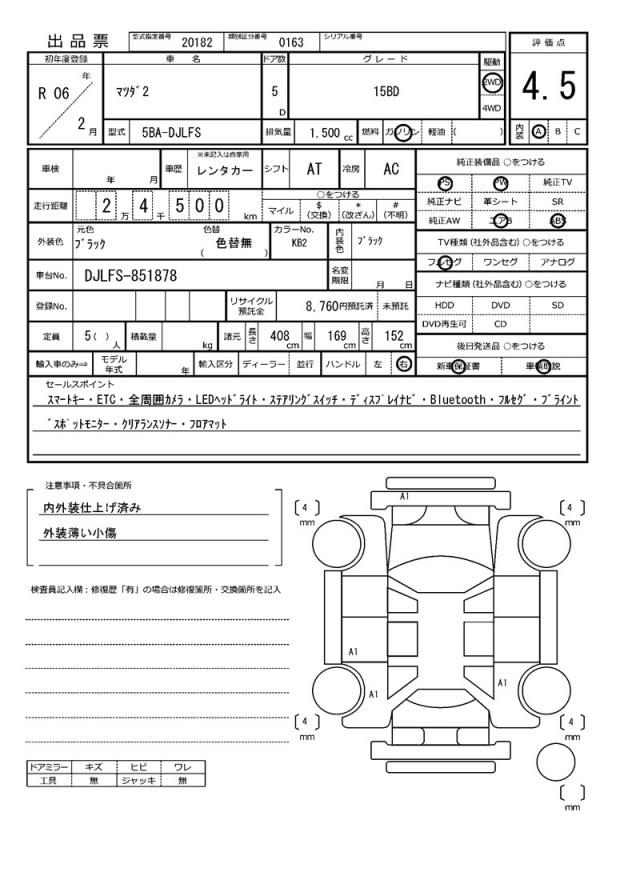 出品票 型式指定番号 20182 類別区分番号 0163 シリアル番号
評価点
4.5
内装 A B C
初年度登録 車名 ドア数 グレード 駆動
R 06 年 2 月 マツダ2 5 D 15BD 2WD 4WD
型式 5BA-DJLFS 排気量 1.500 cc 燃料 ガソリン 軽油 ( )
車検 年 月 車歴 ※未記入は自家用 レンタカー シフト AT 冷房 AC
走行距離 2 万 4 千 5 0 0 km
○をつける
マイル $(交換) *(改ざん) #(不明)
外装色 元色 ブラック 色替 ( 色替無 ) カラーNo. KB2 内装色 ブラック
車台No. DJLFS-851878 名変期限 月 日
登録No. リサイクル預託金 8,760円預託済 未預託
定員 5( )人 積載量 kg 諸元 長さ 408 cm 幅 169 cm 高さ 152 cm
輸入車のみ⇒ モデル年式 年 輸入区分 ディーラー 並行 ハンドル 左 右
純正装備品 ○をつける
PS PW 純正TV
純正ナビ 革シート SR
純正AW エアB ABS
TV種類(社外品含む)○をつける
フルセグ ワンセグ アナログ
ナビ種類(社外品含む)○をつける
HDD DVD SD
DVD再生可 CD
後日発送品 ○をつける
新車保証書 車輌取説
セールスポイント
スマートキー・ETC・全周囲カメラ・LEDヘッドライト・ステアリングスイッチ・ディスプレイナビ・Bluetooth・フルセグ・ブライント
゛スポットモニター・クリアランスソナー・フロアマット
注意事項・不具合箇所
内外装仕上げ済み
外装薄い小傷
検査員記入欄：修復歴「有」の場合は修復箇所・交換箇所を記入
ドアミラー キズ ヒビ ワレ
工具 無 ジャッキ 無
A1
[ 4 ] mm
[ 4 ] mm
A1
A1
A1
[ 4 ] mm
[ 4 ] mm
[ ] mm